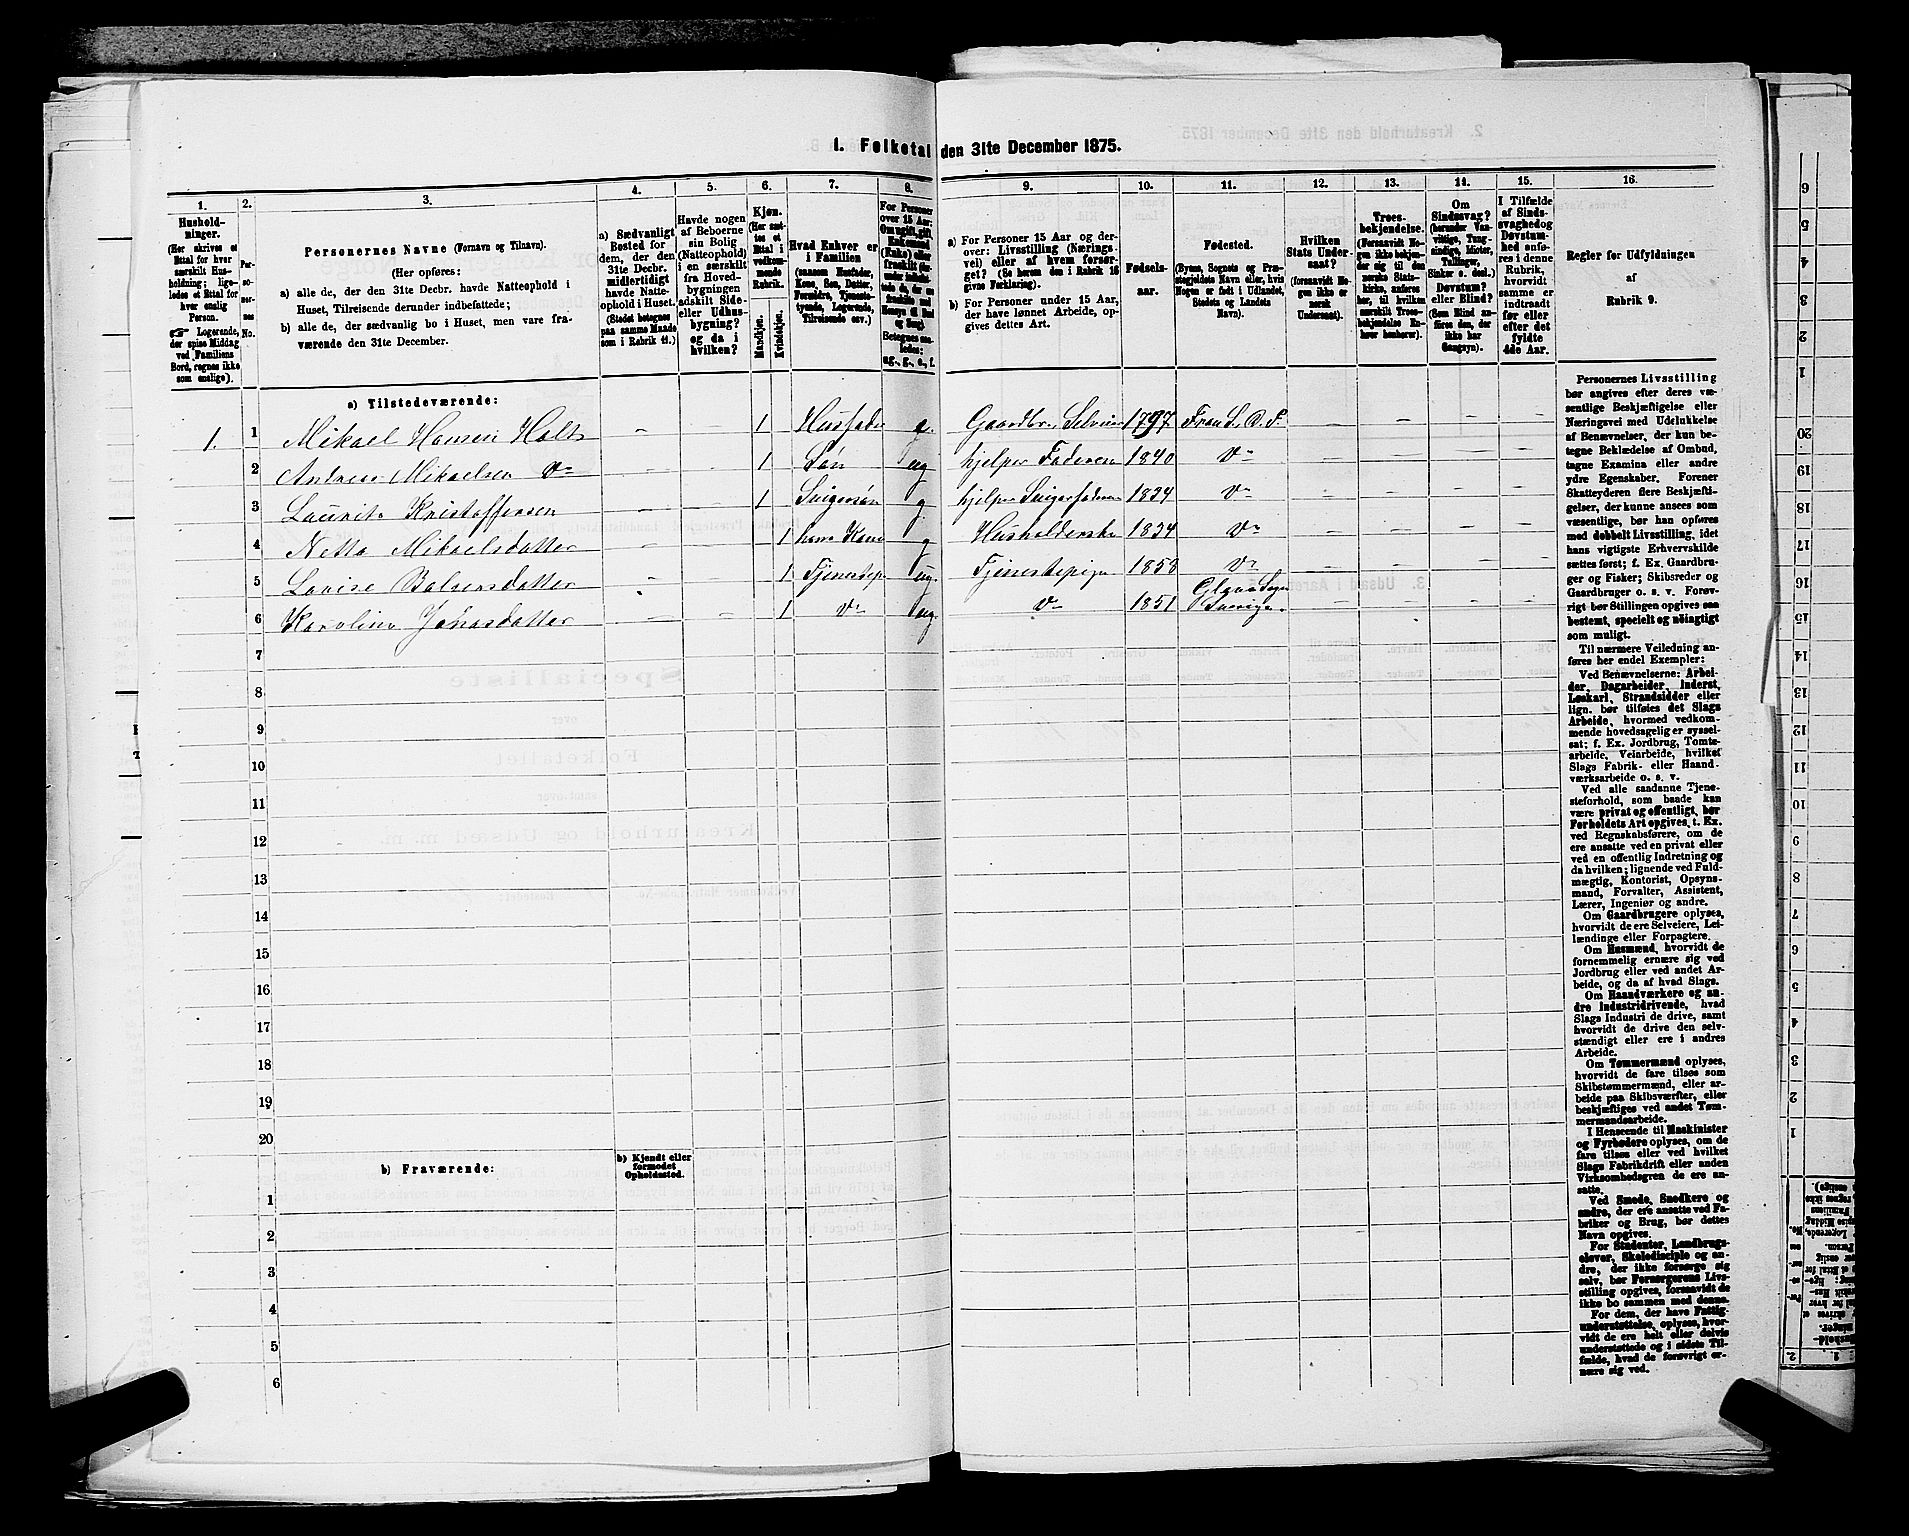 1. Folketal den 31te December 1875.
1.
Hushold-
ninger.
(Her skrives et
Ettal for hver
særskilt Hus-
holdning; lige-
ledes et Ettal for
hver enslig
Person.
☞ Logerende,
der spise Middag
ved Familiens
Bord, regnes ikke
som enslige).
2.
Per-
so-
ner-
nes
No.
3.
Personernes Navne (Fornavn og Tilnavn).
(Her opføres:
a) alle de, der den 31te Decbr. havde Natteophold i
Huset, Tilreisende derunder indbefattede;
b) alle de, der sædvanlig bo i Huset, men vare fra-
værende den 31te December.
4.
a) Sædvanligt
Bosted for
dem, der den
31te Decbr.
midlertidigt
havde Natte-
ophold i Huset.
(Stedet betegnes
paa samme Maade
som i Rubrik 11.)
5.
Havde nogen
af Beboerne
sin Bolig
(Natteophold)
i en særskilt
fra Hoved-
bygningen
adskilt Side-
eller Udhus-
bygning?
og da i
hvilken?
6.
Kjøn.
(Her sæt-
tes et
Ettal i
vedkom-
mende
Rubrik.
Mandkjøn.
Kvindekjøn.
7.
Hvad Enhver er
i Familien
(saasom Husfader,
Kone, Søn, Datter,
Forældre, Tjeneste-
tyende, Logerende,
Tilreisende osv.)
8.
For Personer
over 15 Aar:
Om ugift, gift,
Enkemand
(Enke) eller
fraskilt
9.
a) For Personer 15 Aar og der-
over: Livsstilling (Nærings-
vei) eller af hvem forsør-
get? (Se herom den i Rubrik 16
givne Forklaring).
b) For Personer under 15 Aar,
der have lønnet Arbeide, op-
gives dettes Art.
10.
Fødsels-
aar.
11.
Fødested.
(Byens, Sognets og Præ-
stegjeldets Navn eller, hvis
Nogen er født i Udlandet,
Stedets og Landets
Navn).
12.
Hvilken
Stats Under-
saat?
(forsaavidt No-
gen ikke er
norsk
Undersaat).
13.
Troes-
bekjendelse.
(Forsaavidt No-
gen ikke bekjen-
der sig til den
norske Stats-
kirke, anføres
her, til hvilken
særskilt Troes-
bekjendelse En-
hver henhører).
14.
Om
Sindssvag?
(herunder Van-
vittige, Tung-
sindige, Idioter,
Tullinger,
Sinker o. desl.)
Døvstum?
eller Blind?
(Som Blind an-
føres den, der
ikke har
Gangsyn).
15.
I Tilfælde
af Sinds-
svaghed og
Døvstum-
hed anfø-
res i denne
Rubrik,
hvorvidt
samme er
indtraadt
før eller
efter det
fyldte
4de Aar.
16.
Regler for Udfyldningen
af
Rubrik 9.
a) Tilstedeværende:
1. 1 Mikael Hansen Holt - - 1 Husfader g. Gaardbr. Selveier 1797 - - - -
2 Andreas Mikaelsen Do - - 1 Søn ug hjelper Faderen 1840 Do - - - -
3 Laurits Kristoffersen - - 1 Svigersøn g. hjelper Svigerfaderen 1834 Do - - - -
4 Netta Mikaelsdatter - - 1 hans Kone g Husholderske 1834 Do - - - -
5 Lovise - - 1 Tjenestep. ug. Tjenestepige 1853 Do - - - -
6 Karoline Jonasdatter - - 1 Do ug. Do 1851 Sogn Sverige - - - -
7
8
9
10
11
12
13
14
15
16
17
18
19
20
b) Fraværende:
b) Kjendt eller
formodet
Opholdssted.
1
2
3
4
5
6
Personernes Livsstilling
bør angives efter deres væ-
sentlige Beskjæftigelse eller
Næringsvei med Udelukkelse
af Benævnelser, der kun be-
tegne Beklædelse af Ombud,
tagne Examina eller andre
ydre Egenskaber. Forener
Skatteyderen flere Beskjæfti-
gelser, der kunne ansees som
væsentlige, bør han opføres
med dobbelt Livsstilling, idet
hans vigtigste Erhvervskilde
sættes først; f. Ex. Gaardbru-
ger og Fisker; Skibsreder og
Gaardbruger o. s. v. Forøv-
rigt bør Stillingen opgives saa
bestemt, specielt og nøiagtigt
som muligt.
Til nærmere Veiledning an-
føres her endel Exempler:
Ved Benævnelserne: Arbei-
der, Dagarbeider, Inderst,
Løskarl, Strandsidder eller
lign. bør tilføies det Slags
Arbeide, hvormed vedkom-
mende hovedsagelig er syssel-
sat; f. Ex. Jordbrug, Tomte-
arbeide, Veiarbeide, hvilket
Slags Fabrik- eller Haand-
værksarbeide o. s. v.
Ved alle saadanne Tjene-
steforhold, som baade kan
være privat og offentligt, bør
Forholdets Art opgives, t. Ex.
ved Regnskabsførere, om de
ere ansatte ved en privat eller
ved en offentlig Indretning og
da hvilken; lignende ved Fuld-
mægtig, Kontorist, Opsyns-
mand, Forvalter, Assistent,
Lærer, Ingeniør og andre.
Om Gaardbrugere oplyses,
hvorvidt de ere Selveiere, Lei-
lændinge eller Forpagtere.
Om Husmænd, hvorvidt de
fornemmelig ernære sig ved
Jordbrug eller ved andet Ar-
beide, og da af hvad Slags.
Om Haandværkere og an-
dre Industridrivende, hvad
Slags Industri de drive, samt
hvorvidt de drive den selv-
stændigt eller ere i andres
Arbeide.
Om Tømmermænd oplyses,
hvorvidt de fare tilsøs som
Skibstømmermænd, eller ar-
beide paa Skibsværfter, eller
beskjæftiges ved andet Tøm-
mermandsarbeide.
I Henseende til Maskinister
og Fyrbødere oplyses, om de
fare tilsøs eller ved hvilket
Slags Fabrikdrift eller anden
Virksomhedsgren de ere an-
satte.
Ved Smede, Snedkere og
andre, der ere ansatte ved Fa-
briker og Brug, bør dettes
Navn opgives.
For Studenter, Landbrugs-
elever, Skoledisciple og an-
dre, der ikke forsørge sig
selv, bør Forsørgerens Livs-
stilling opgives, forsaavidt de
ikke bo sammen med denne.
For dem, der have Fattig-
understøttelse, oplyses, hvor-
vidt de ere helt eller delvis
understøttede og i sidste Til-
fælde, hvad de forøvrigt er-
nære sig ved.